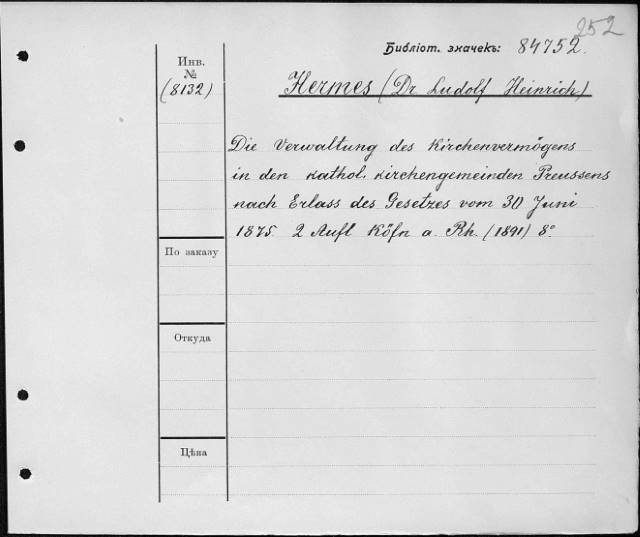 252
Библіот. значекъ: 84752.
Инв.
№
(8132)
Hermes (Dr Ludolf Heinrich)
Die Verwaltung des Kirchenvermögens
in den kathol. Kirchengemeinden Preussens
nach Erlass des Gesetzes vom 30 Juni
1875. 2 Aufl Köln a. Rh. (1891) 8°.
По заказу
Откуда
Цѣна